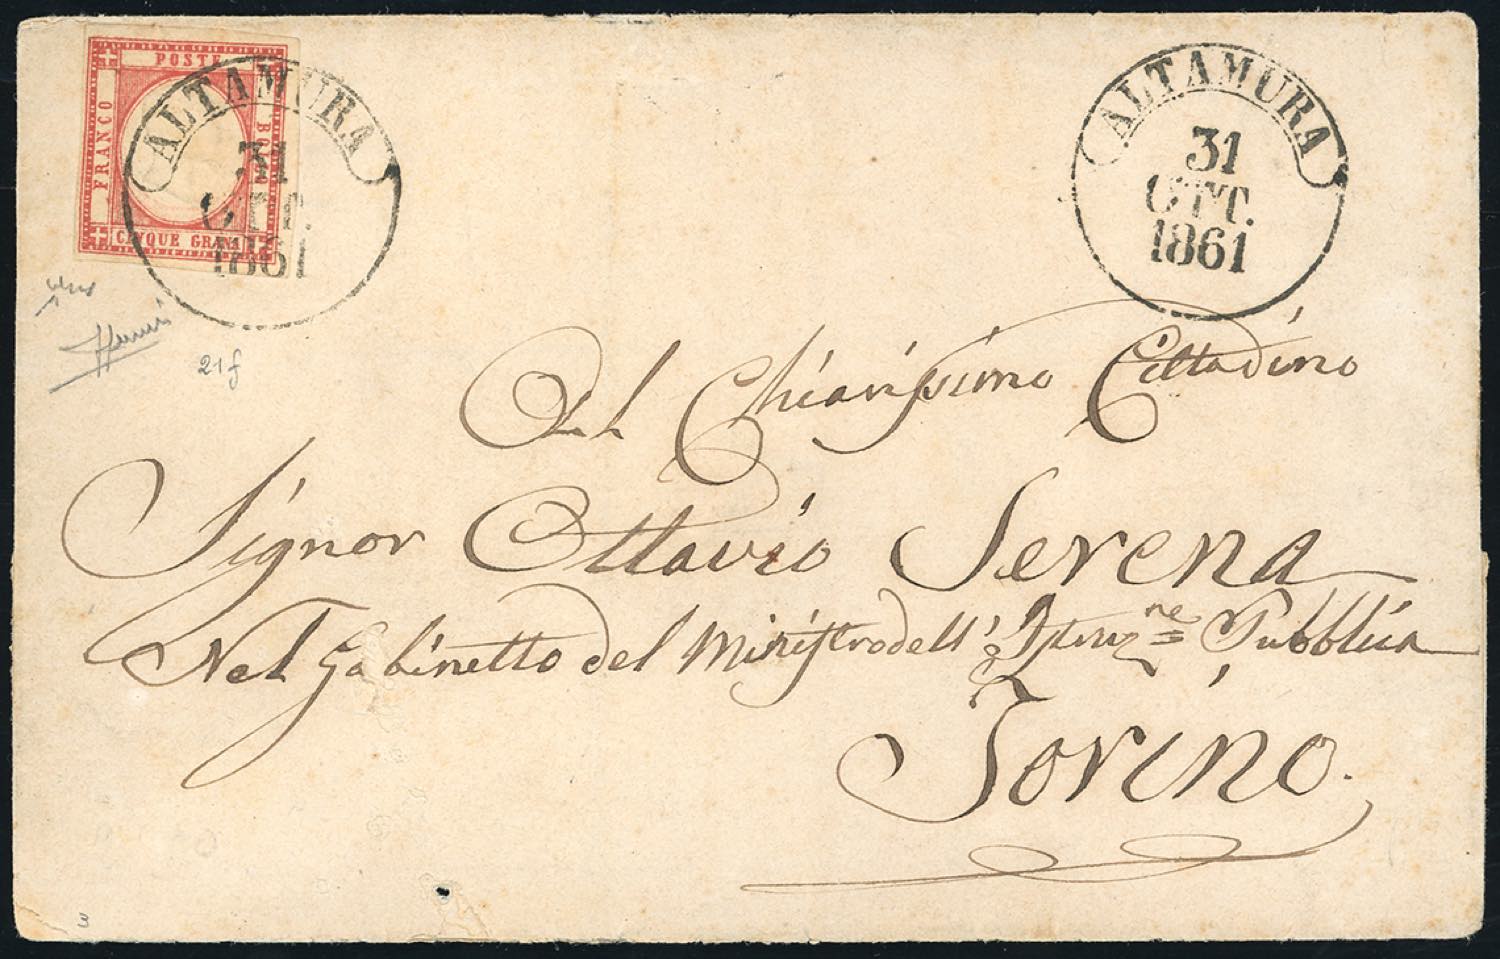 POSTE
FRANCO
BOLLO
CINQUE GRANA
ALTAMURA
31
OTT.
1861
ALTAMURA
31
OTT.
1861
21f
Al Chiarissimo Cittadino
Signor Ottavio Serena
Nel Gabinetto del Ministro dell' Istruzne Pubblica
Torino.
3